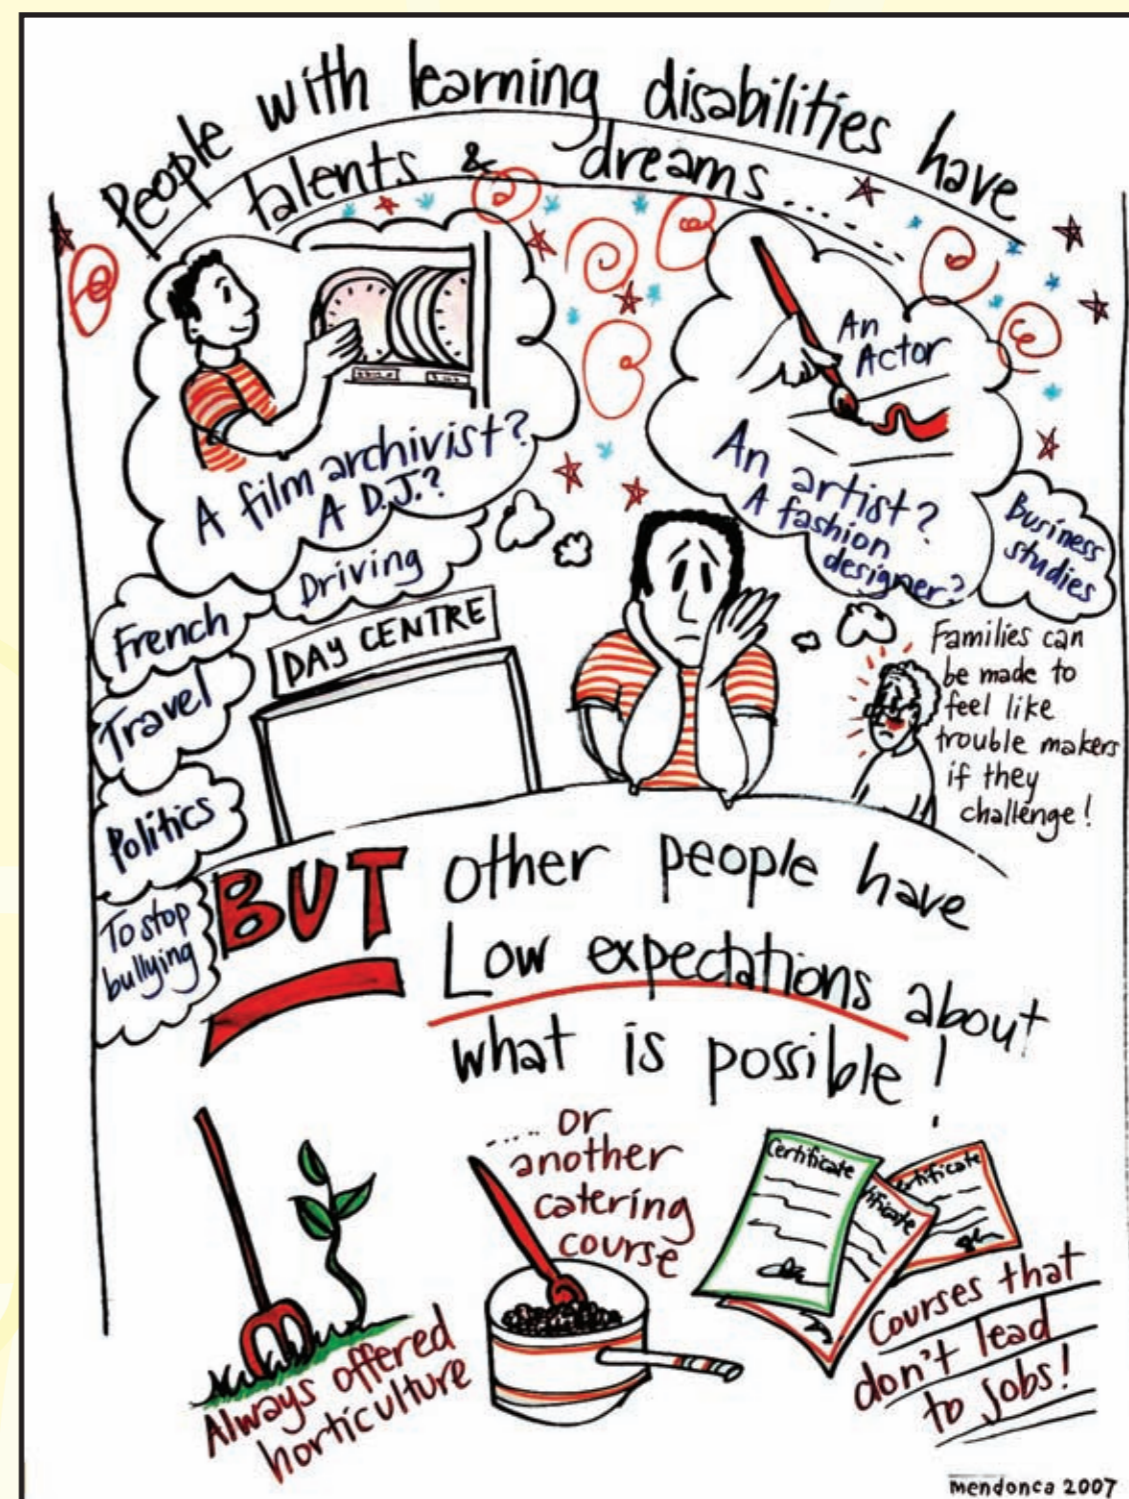 People with learning disabilities have
talents & dreams.....
A film archivist?
A D.J.?
An
Actor
An artist?
A fashion
designer?
Business
studies
Driving
French
Travel
Politics
To stop
bullying
DAY CENTRE
Families can
be made to
feel like
trouble makers
if they
challenge!
BUT other people have
Low expectations about
what is possible!
Always offered
horticulture
..... or
another
catering
course
Certificate
tificate
ertificate
Courses that
don't lead
to jobs!
mendonca 2007